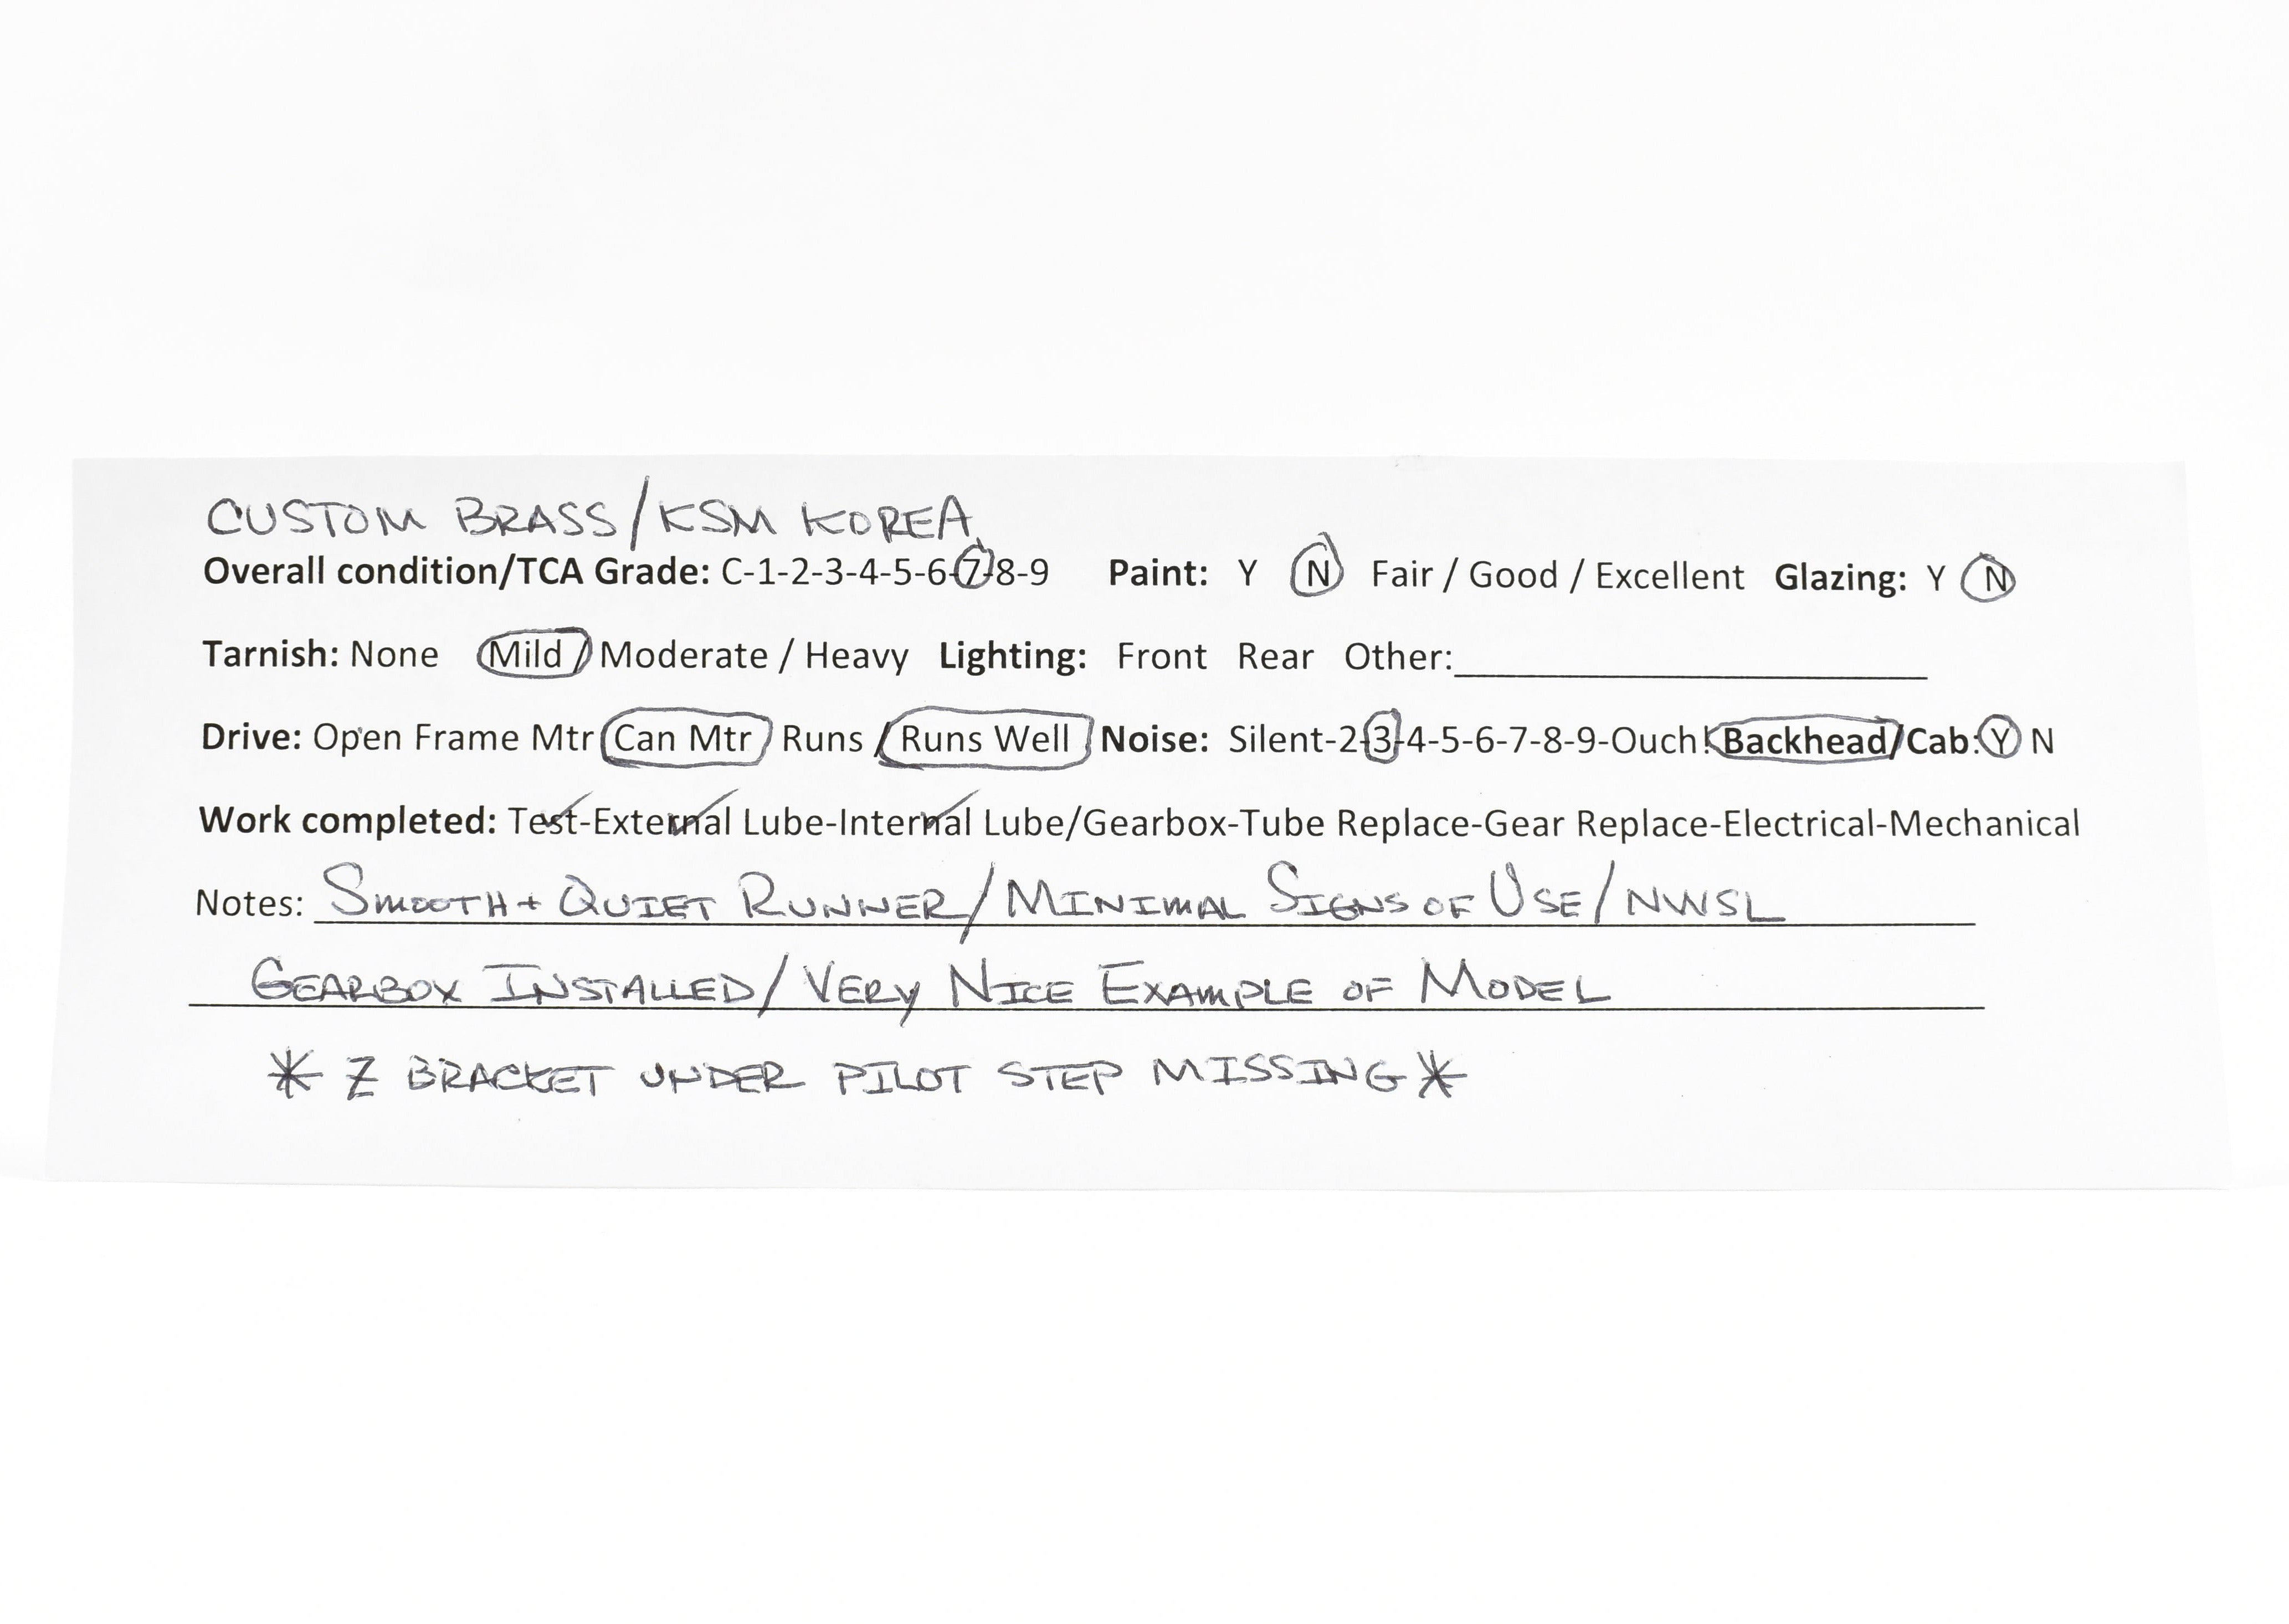 CUSTOM BRASS/KSM KOREA
Overall condition/TCA Grade: C-1-2-3-4-5-6-7-8-9 Paint: Y N Fair / Good / Excellent Glazing: Y N
Tarnish: None Mild / Moderate / Heavy Lighting: Front Rear Other:
Drive: Open Frame Mtr Can Mtr / Runs / Runs Well Noise: Silent-2-3-4-5-6-7-8-9-Ouch! Backhead/Cab: Y N
Work completed: Test-External Lube-Internal Lube/Gearbox-Tube Replace-Gear Replace-Electrical-Mechanical
Notes: SMOOTH + QUIET RUNNER/MINIMAL SIGNS OF USE/NWSL
GEARBOX INSTALLED/VERY NICE EXAMPLE OF MODEL
* Z BRACKET UNDER PILOT STEP MISSING *